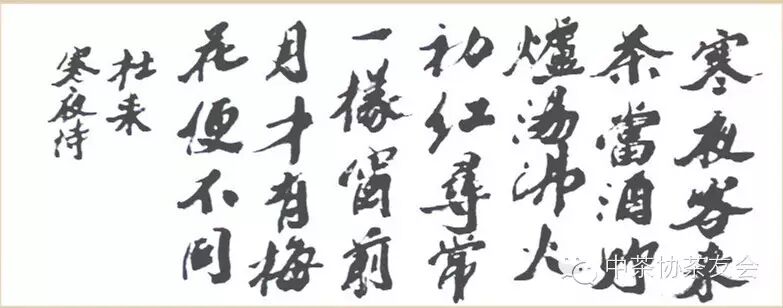 寒夜客来
茶當酒竹
爐湯沸火
初红尋常
一樣窗前
月才有梅
花便不同
杜耒
寒夜诗
中茶协茶友会